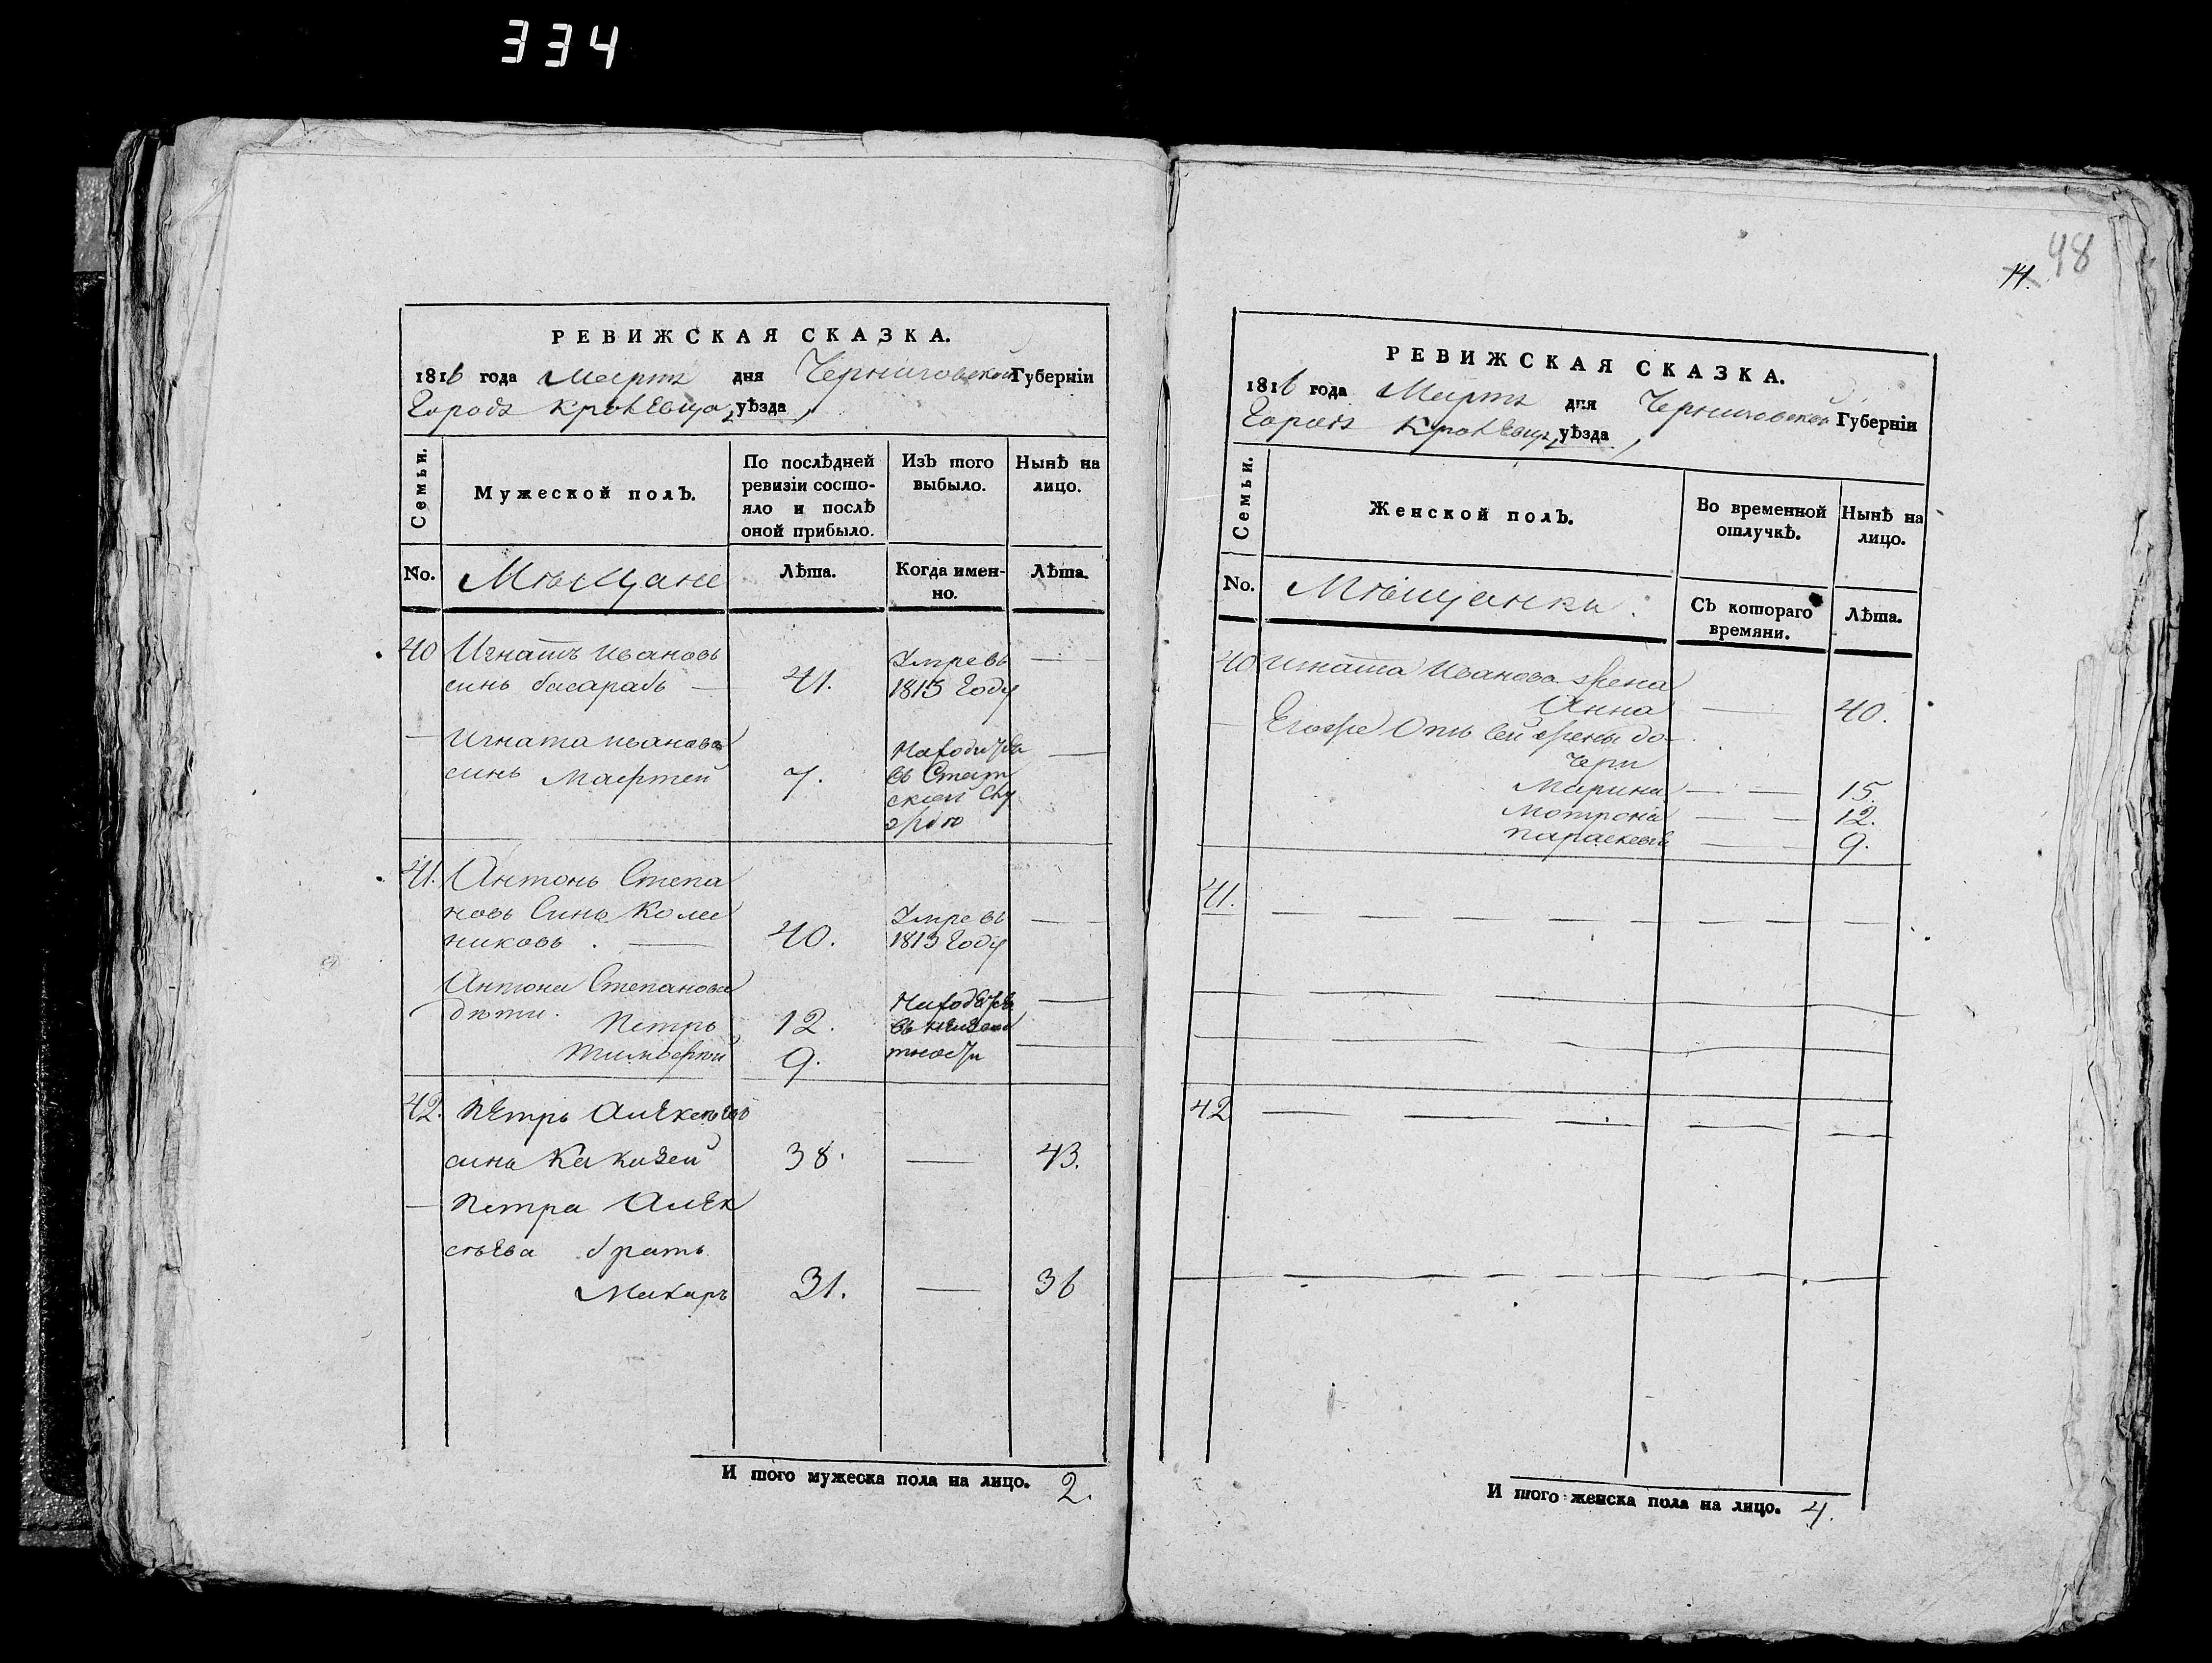 334
РЕВИЖСКАЯ СКАЗКА.
1816 года Мартъ дня Черниговской Губерніи
Городъ Кролевца, уѣзда
Семьи.
Мужеской полъ.
По послѣдней ревизіи состо-
яло и послѣ оной прибыло.
Изъ того выбыло.
Нынѣ на лицо.
No.
Мѣщане
Лѣта.
Когда имен-
но.
Лѣта.
40 Игнатъ Ивановъ
синъ басарабъ — 41. Умре въ 1813 Году —
— Игната Иванова
синъ 7. Находится въ Статской —
41. Антонъ Степа
новъ Синъ Колес
никовъ . — 40. Умре въ 1813 Году —
Антона Степанова
дѣти.
Петръ 12. —
Тимофей 9. —
42. Петръ Алексѣевъ
синъ 38. — 43.
— Петра Алек
сѣева братъ
Макаръ 31. — 36
И того мужеска пола на лицо. 2.
14. 48
РЕВИЖСКАЯ СКАЗКА.
1816 года Мартъ дня Черниговской Губерніи
Городъ Кролевцъ, уѣзда
Семьи.
Женской полъ.
Во временной отлучкѣ.
Нынѣ на лицо.
No.
Мѣщанки.
Съ котораго
времяни.
Лѣта.
40 Игната Иванова жена
Анна — 40.
— Егоже отъ сей жены до-
чери
Марина — — 15.
Мотрона — — 12.
Параскевія — — 9.
41.
42
И того женска пола на лицо. 4.